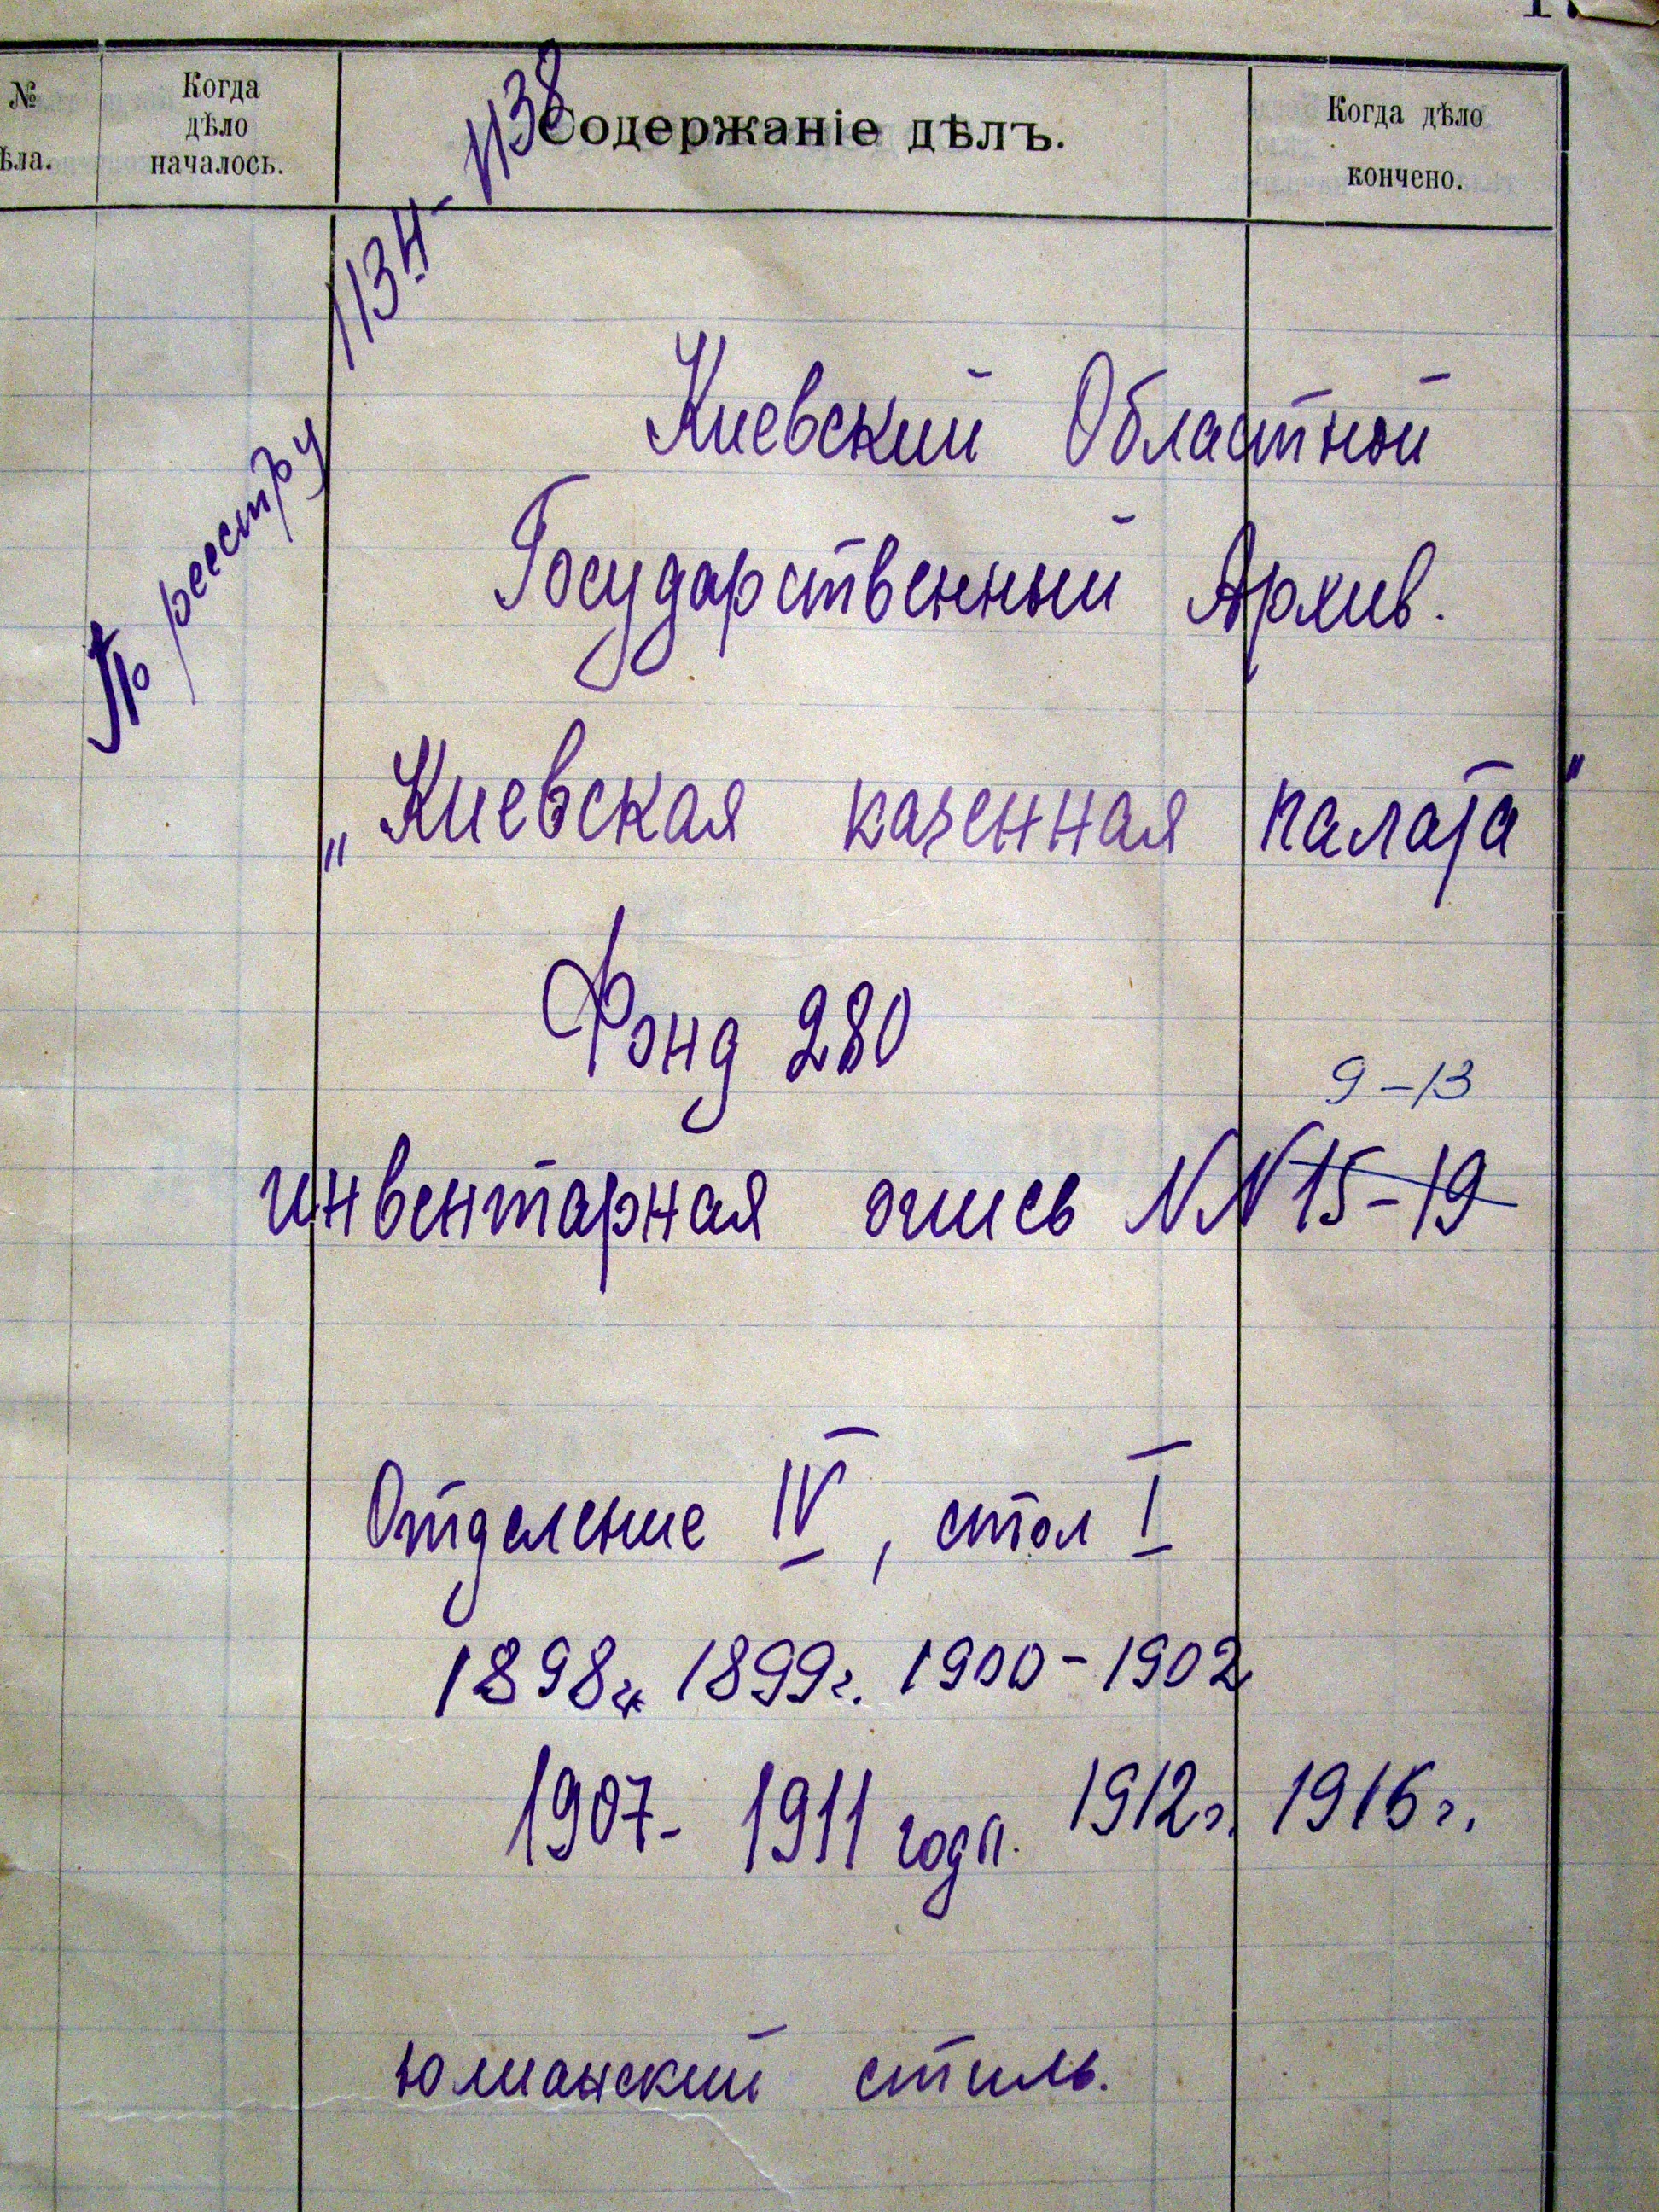 №
ѣла.
Когда
дѣло
началось.
Содержаніе дѣлъ.
Когда дѣло
кончено.
По реестру 1134-1138
Киевский Областной
Государственный Архив.
„Киевская казенная палата"
Фонд 280
9-13
инвентарная опись NN 15-19
Отделение IV, стол I
1898г. 1899г. 1900-1902
1907-1911 годы. 1912г. 1916г.
юлианский стиль.